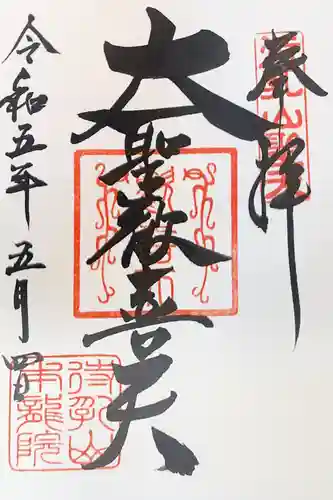 奉拝
大聖歓喜天
令和五年五月四日
待乳山
本龍院